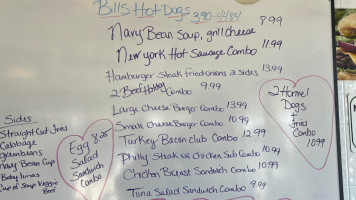 Bills Hot Dogs 390-4484
Navy Bean Soup, grill cheese 9.99
New york Hot Sausage Combo 11.99
Hamburger steak fried onions 2 sides 13.99
2 Beef Hotdog Combo 9.99
Large Cheese Burger Combo 13.99
Small Cheese Burger Combo 10.99
Turkey Bacon club Combo 12.99
Philly Steak or Chicken Sub Combo 10.99
Chicken Breast Sandwich Combo 10.99
Tuna Salad Sandwich Combo 9.99
Sides
Straight Cut fries
Cabbage
greenbeans
Navy Bean Cup
Baby limas
Cup of Soup Veggie
Beef
Egg 8.25
Salad
Sandwich
Combo
2 Hormel
Dogs
+
Fries
Combo
10.99